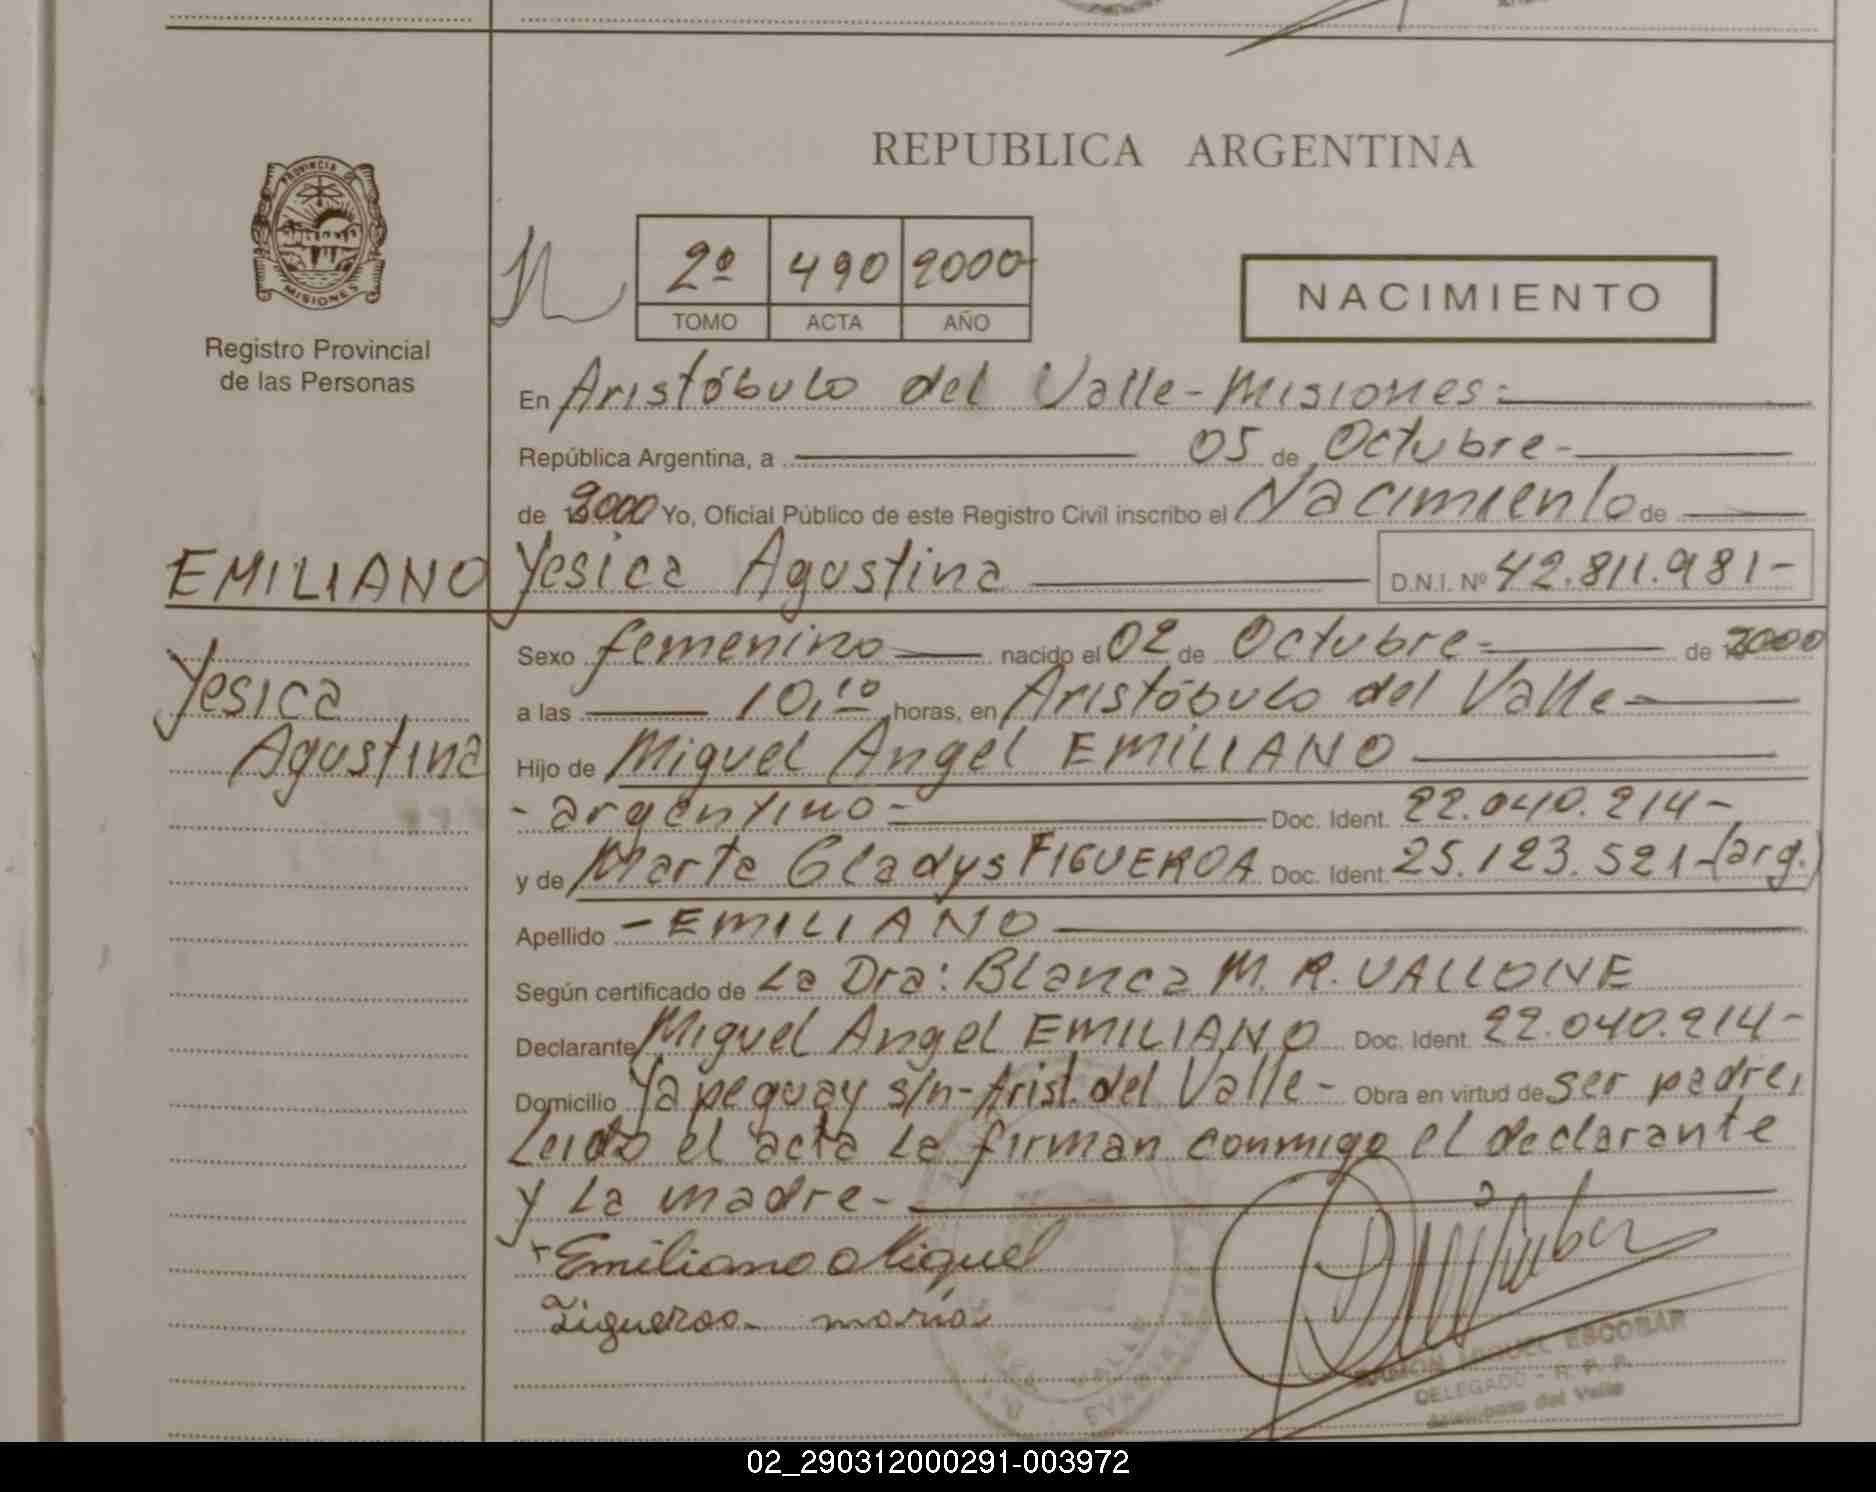 REPUBLICA ARGENTINA
PROVINCIA DE
MISIONES
Registro Provincial
de las Personas
2º 490 2000
TOMO ACTA AÑO
NACIMIENTO
En Aristóbulo del Valle - Misiones:
República Argentina, a 05 de Octubre -
de 2000 Yo, Oficial Público de este Registro Civil inscribo el Nacimiento de
EMILIANO Yesica Agustina D.N.I. Nº 42.811.981-
Yesica
Agustina
Sexo femenino nacido el 02 de Octubre - de 2000
a las 10,10 horas, en Aristóbulo del Valle -
Hijo de Miguel Angel EMILIANO
- argentino - Doc. Ident. 22.040.214-
y de Marta Gladys FIGUEROA Doc. Ident. 25.123.521-(arg.)
Apellido - EMILIANO
Según certificado de La Dra: Blanca M. R. VALLONE
Declarante Miguel Angel EMILIANO Doc. Ident. 22.040.214-
Domicilio Yapeguay s/n - Arist. del Valle - Obra en virtud de ser padre,
Leido el acta la firman conmigo el declarante
y la madre -
Emiliano Miguel
Figueroa maria
RAMON MIGUEL ESCOBAR
DELEGADO - R. P. P.
Aristóbulo del Valle
02_290312000291-003972